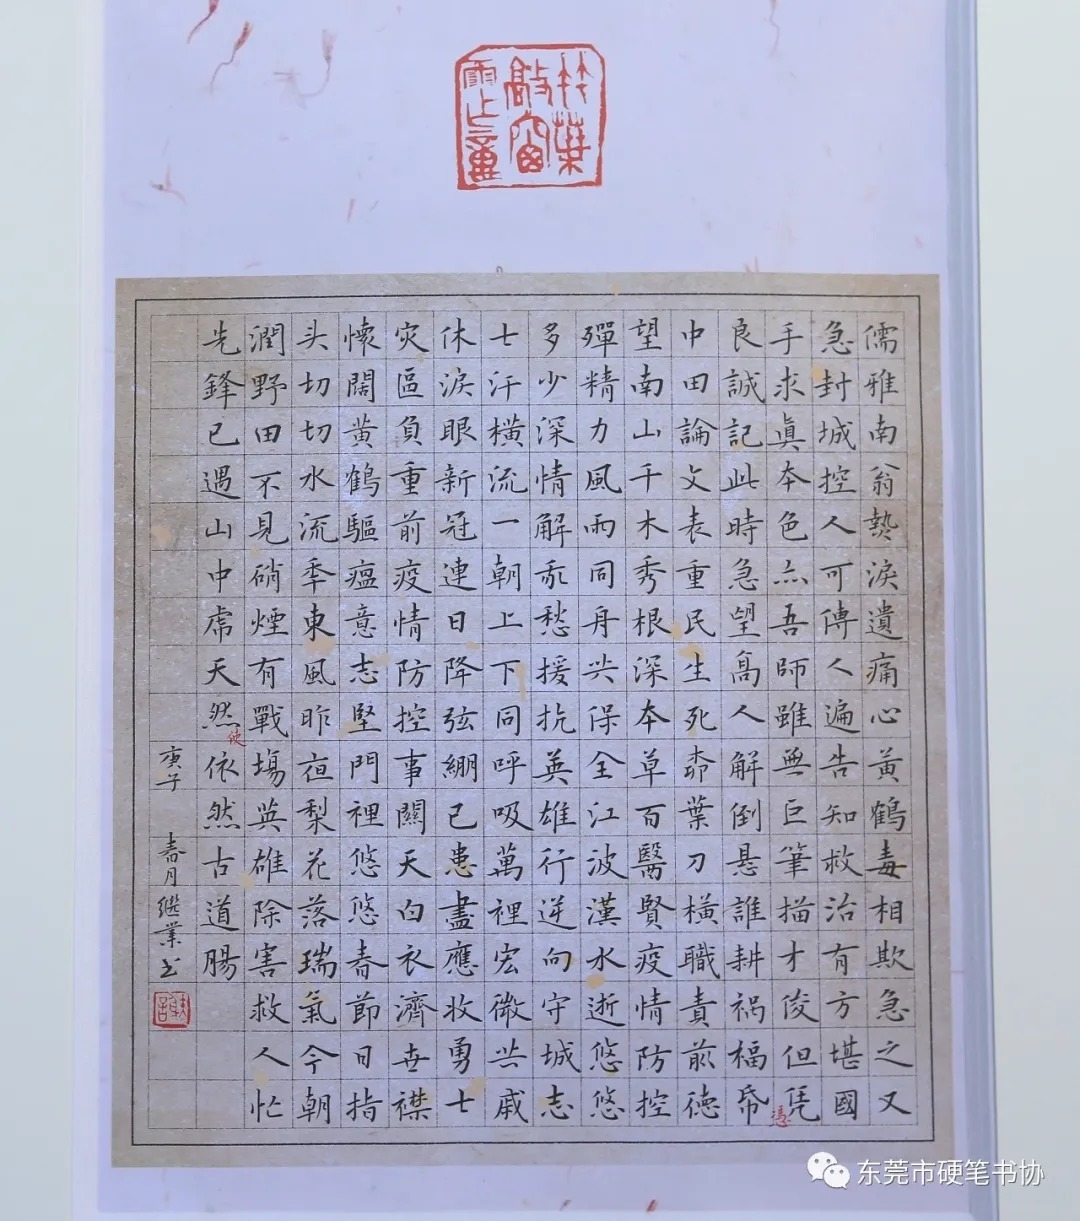 竹葉
敲窗
雨上
儒雅南翁熱淚遺痛心黄鶴毒相欺急之又
急封城控人可傳人遍告知救治有方堪國
手求眞本色亦吾師雖無巨筆描才俊但凭
憑
良誠記此時急望高人解倒悬誰耕禍福帋
中田論文表重民生死葉刀橫職責前德
望南山千木秀根深本草百醫賢疫情防控
殫精力風雨同舟共保全江波漢水逝悠悠
多少深情解乖愁援抗英雄行逆向守城志
七汗橫流一朝上下同呼吸萬裡宏微共戚
休淚眼新冠連日降弦綳已患盡應收勇士
灾區負重前疫情防控事關天白衣濟世襟
懷闊黄鶴驅瘟意志堅門裡悠悠春節日指
头切切水流季東風昨夜梨花落瑞氣今朝
潤野田不見硝煙有戰場英雄除害救人忙
先鋒已遇山中虎天然依然古道腸
使
庚子 春月繼業书
东莞市硬笔书协